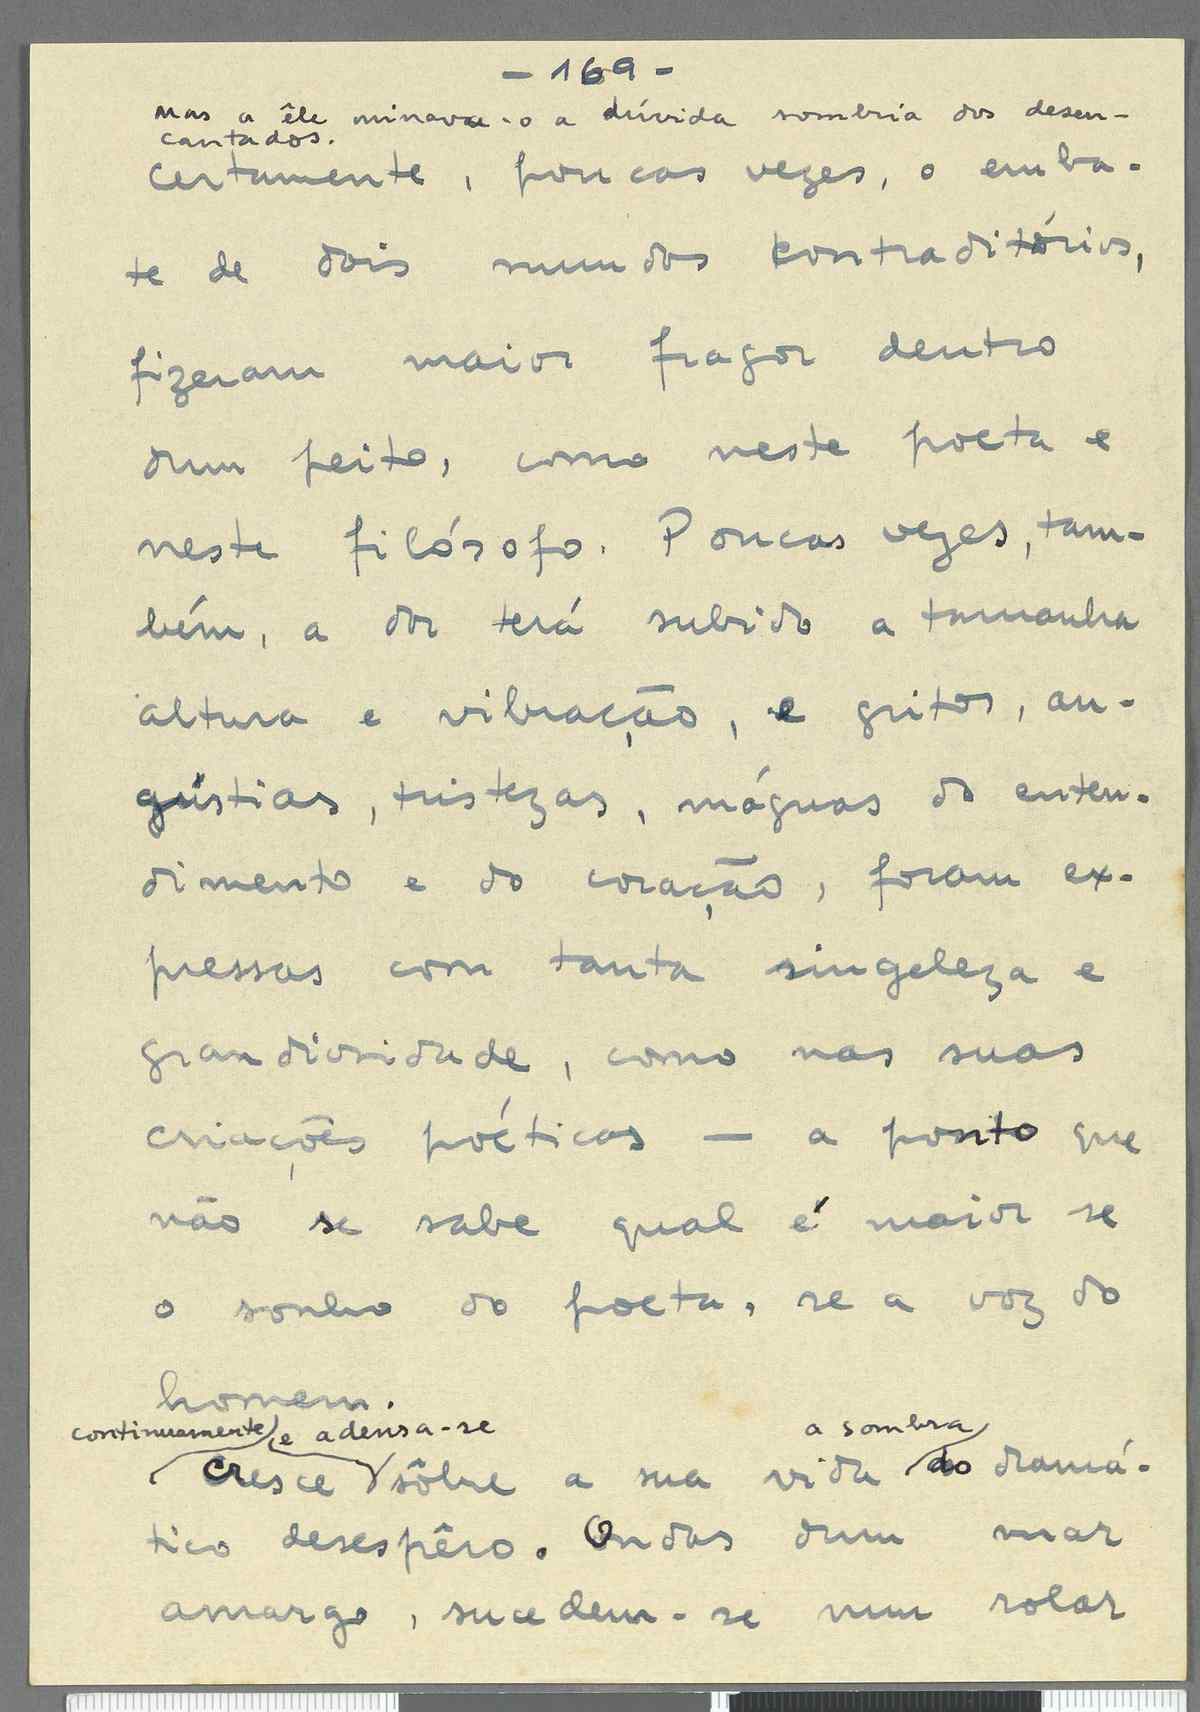 - 169 -
Mas a êle minava-o a dúvida sombria dos desen-
cantados.
certamente, poucas vezes, o emba-
te de dois mundos contraditórios,
fizeram maior fragor dentro
dum peito, como neste poeta e
neste filósofo. Poucas vezes, tam-
bém, a dor terá subido a tamanha
altura e vibração, e gritos, an-
gústias, tristezas, máguas do enten-
dimento e do coração, foram ex-
pressas com tanta singeleza e
grandiosidade, como nas suas
criações poéticas — a ponto que
não se sabe qual é maior se
o sonho do poeta, se a voz do
homem.
continuamente e adensa-se a sombra
Cresce sôbre a sua vida do dramá-
tico desespêro. Ondas dum mar
amargo, sucedem-se num rolar